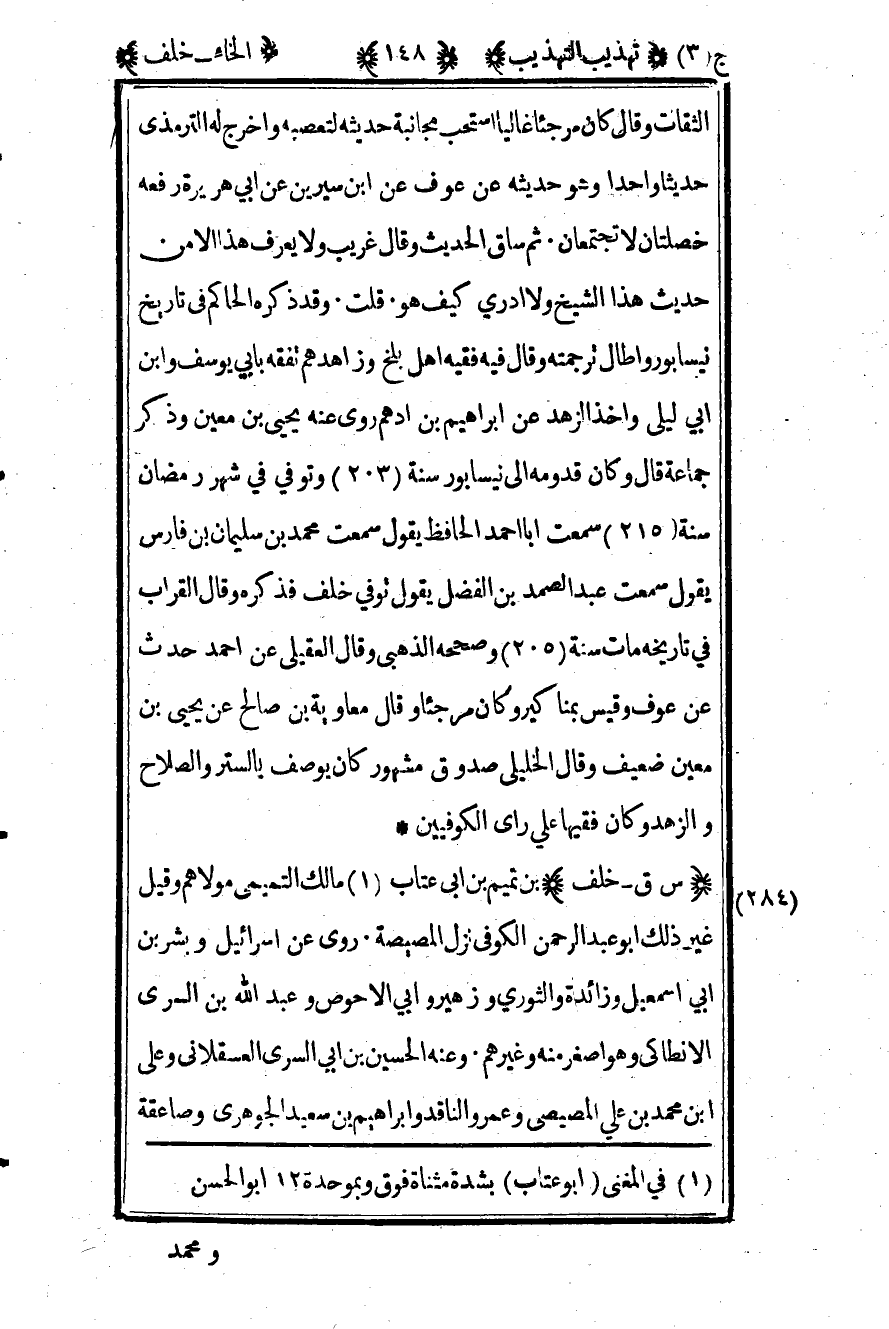 ج (٣) ﴿ تهذيب التهذيب ﴾ ﴿ ١٤٨ ﴾ ﴿ الخاء ـ خلف ﴾
الثقات وقال كان مرجئا غاليا استحب مجانبة حديثه لتعصبه واخرج له الترمذى
حديثا واحدا وهو حديثه عن عوف عن ابن سيرين عن ابي هريرة رفعه
خصلتان لا تجتمعان ٠ ثم ساق الحديث وقال غريب ولا يعرف هذا الا من
حديث هذا الشيخ ولا ادري كيف هو ٠ قلت ٠ وقد ذكره الحاكم فى تاريخ
نيسابور واطال ترجمته وقال فيه فقيه اهل بلخ وزاهدهم تفقه بابي يوسف وابن
ابي ليلى واخذ الزهد عن ابراهيم بن ادهم روى عنه يحيى بن معين وذكر
جماعة قال وكان قدومه الى نيسابور سنة (٢٠٣) وتوفي في شهر رمضان
سنة (٢١٥) سمعت ابا احمد الحافظ يقول سمعت محمد بن سليمان بن فارس
يقول سمعت عبد الصمد بن الفضل يقول توفي خلف فذكره وقال القراب
في تاريخه مات سنة (٢٠٥) وصححه الذهبى وقال العقيلى عن احمد حدث
عن عوف وقيس بمناكير وكان مرجئا وقال معاوية بن صالح عن يحيى بن
معين ضعيف وقال الخليلى صدوق مشهور كان يوصف بالستر والصلاح
والزهد وكان فقيها على راى الكوفيين *
﴿ س ق ـ خلف ﴾ بن تميم بن ابى عتاب (١) مالك التميمى مولاهم وقيل
(٢٨٤)
غير ذلك ابو عبد الرحمن الكوفى نزل المصيصة ٠ روى عن اسرائيل وبشر بن
ابي اسمعيل وزائدة والثوري وزهير وابي الاحوص وعبد الله بن السرى
الانطاكى وهو اصغر منه وغيرهم ٠ وعنه الحسين بن ابي السرى العسقلانى وعلى
ابن محمد بن علي المصيصى وعمرو الناقد وابراهيم بن سعيد الجوهرى وصاعقة
(١) في المغنى (ابو عتاب) بشدة مثناة فوق وبموحدة ١٢ ابو الحسن
و محمد